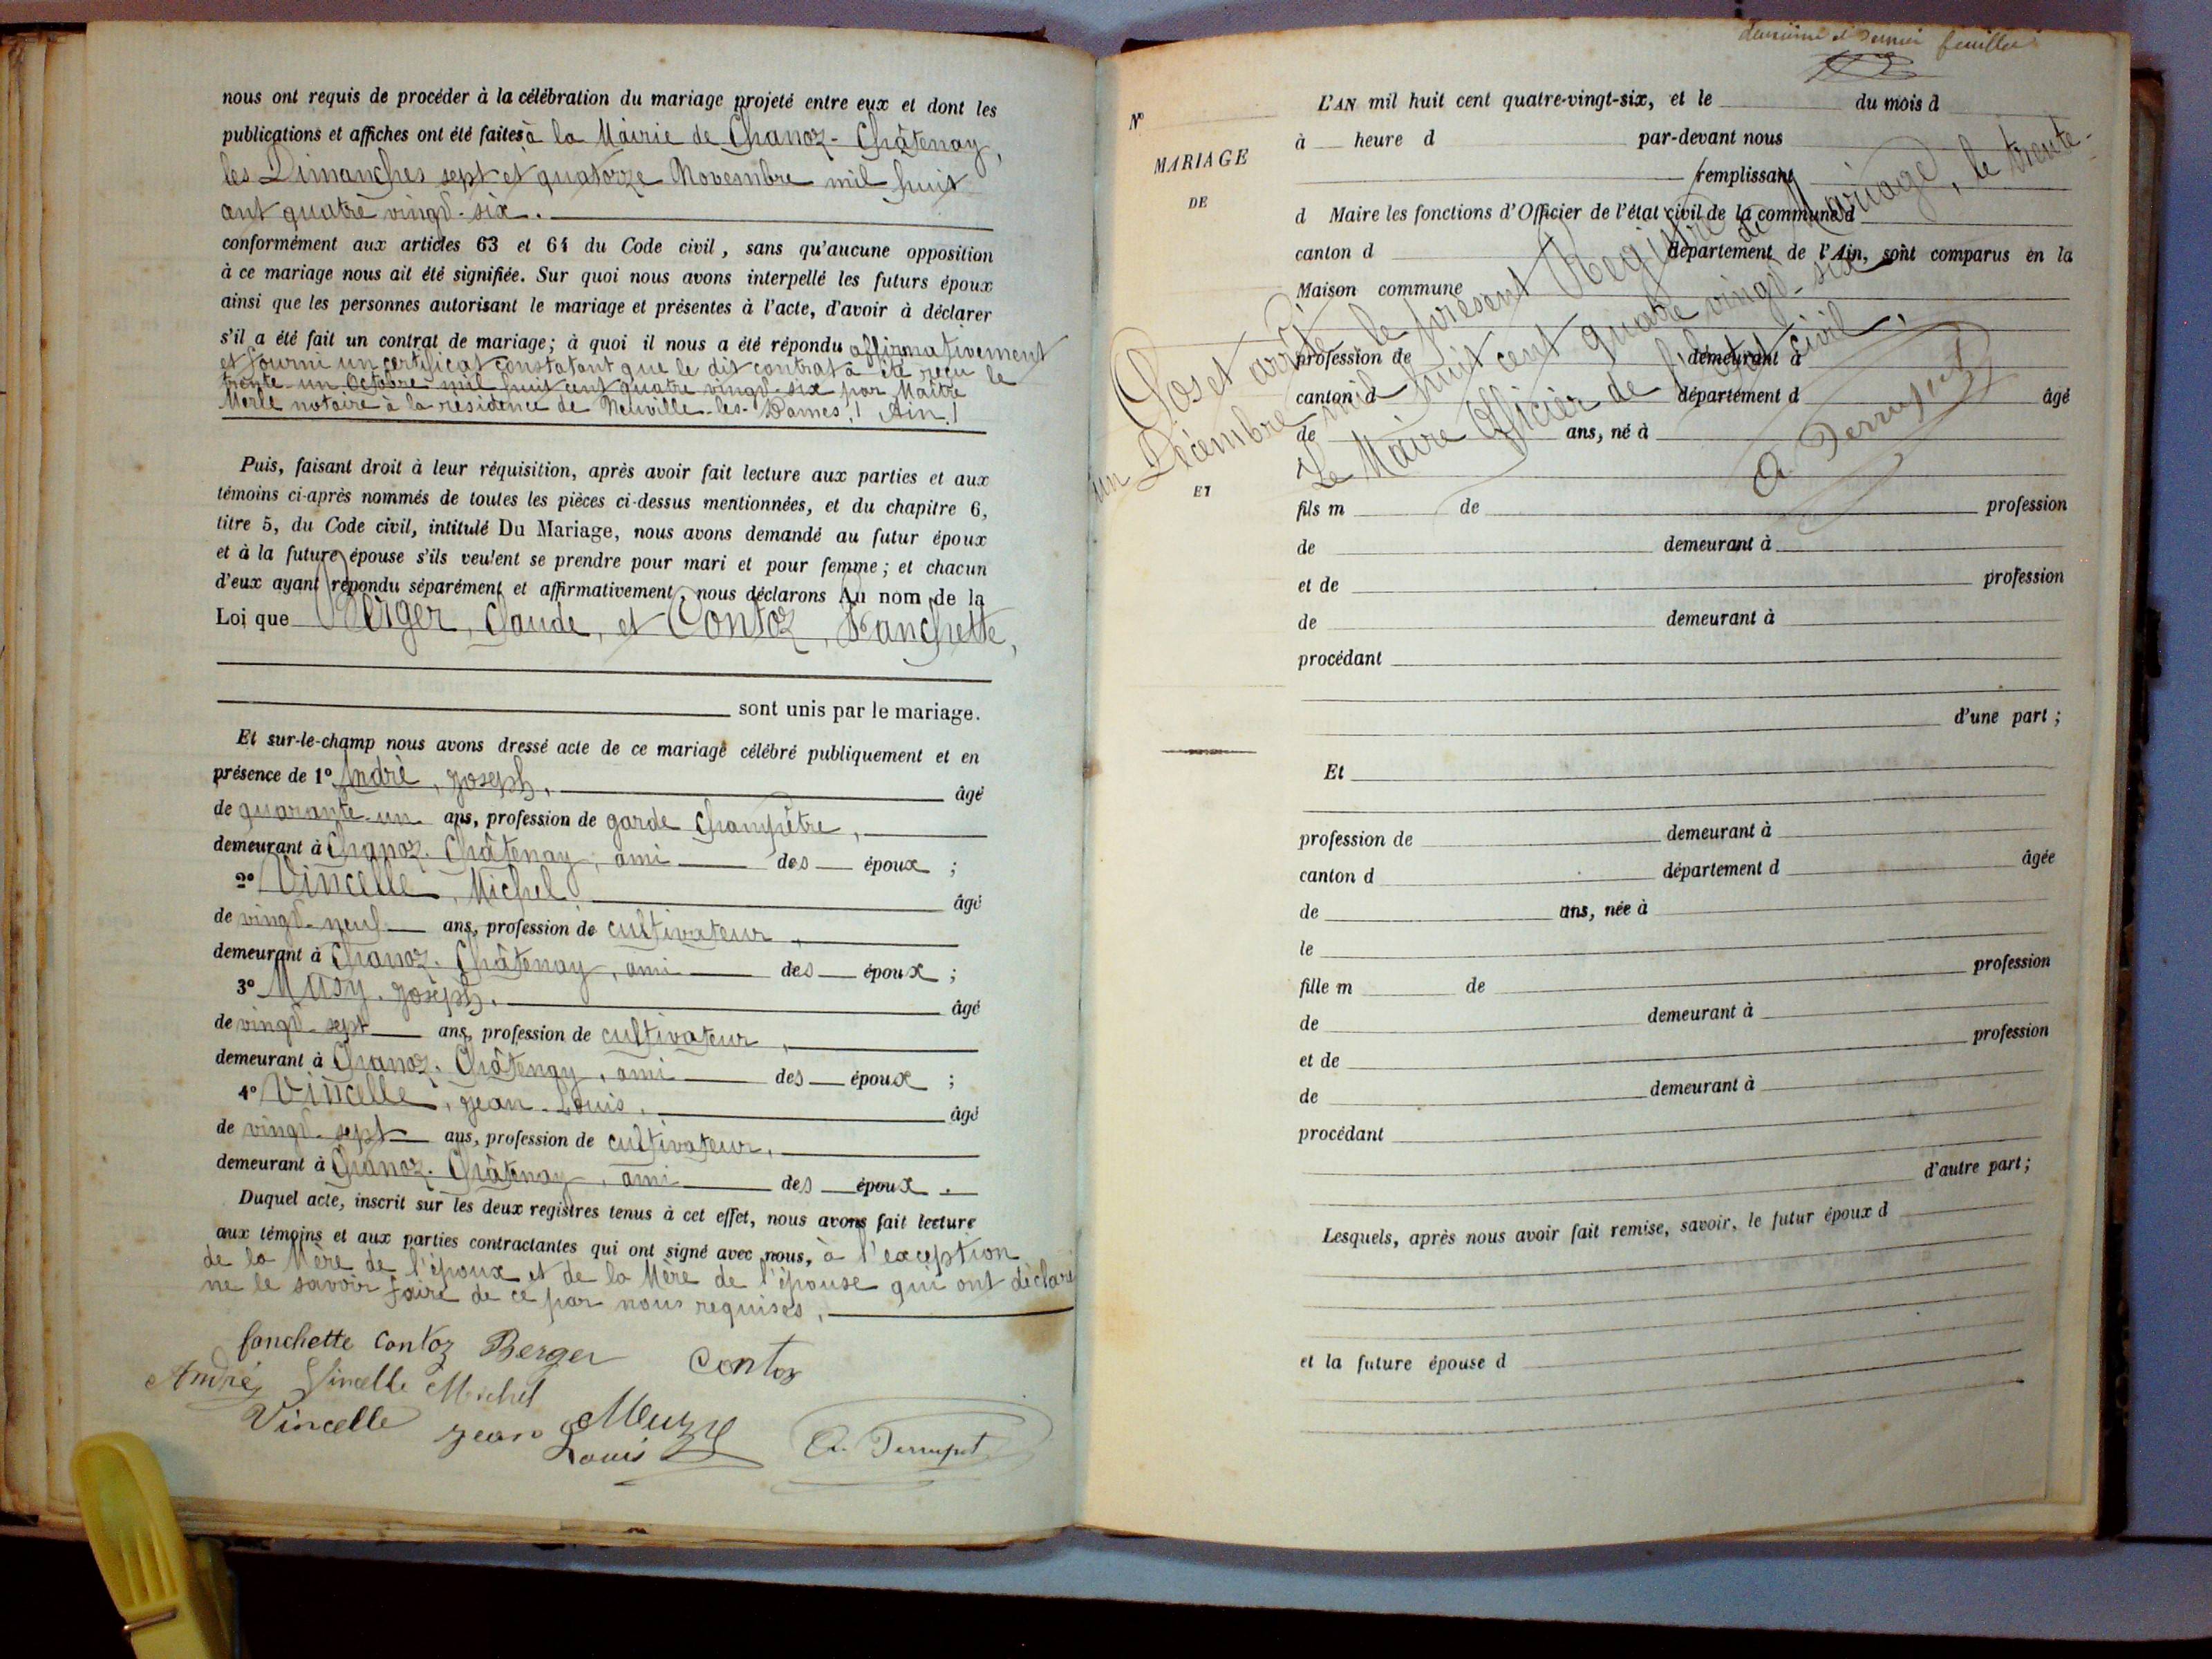 nous ont requis de procéder à la célébration du mariage projeté entre eux et dont les
publications et affiches ont été faites à la Mairie de Chanoz-Châtenay,
les Dimanches sept et quatorze Novembre mil huit
cent quatre vingt-six.
conformément aux articles 63 et 64 du Code civil, sans qu'aucune opposition
à ce mariage nous ait été signifiée. Sur quoi nous avons interpellé les futurs époux
ainsi que les personnes autorisant le mariage et présentes à l'acte, d'avoir à déclarer
s'il a été fait un contrat de mariage; à quoi il nous a été répondu affirmativement
et fourni un certificat constatant que le dit contrat a été reçu le
trente-un Octobre mil huit cent quatre vingt-six par Maître
Merle notaire à la résidence de Neuville-les-Dames. (Ain)
Puis, faisant droit à leur réquisition, après avoir fait lecture aux parties et aux
témoins ci-après nommés de toutes les pièces ci-dessus mentionnées, et du chapitre 6,
titre 5, du Code civil, intitulé Du Mariage, nous avons demandé au futur époux
et à la future épouse s'ils veulent se prendre pour mari et pour femme; et chacun
d'eux ayant répondu séparément et affirmativement, nous déclarons Au nom de la
Loi que Berger, Claude, et Contoz, Fanchette,
sont unis par le mariage.
Et sur-le-champ nous avons dressé acte de ce mariage célébré publiquement et en
présence de 1° André, Joseph, âgé
de quarante-un ans, profession de garde Champêtre,
demeurant à Chanoz-Châtenay, ami des époux;
2° Vincelle, Michel âgé
de vingt-neuf ans, profession de cultivateur,
demeurant à Chanoz-Châtenay, ami des époux;
3° Muzy, Joseph. âgé
de vingt-sept ans, profession de cultivateur,
demeurant à Chanoz-Châtenay, ami des époux;
4° Vincelle, Jean-Louis, âgé
de vingt-sept ans, profession de cultivateur,
demeurant à Chanoz-Châtenay, ami des époux.
Duquel acte, inscrit sur les deux registres tenus à cet effet, nous avons fait lecture
aux témoins et aux parties contractantes qui ont signé avec nous, à l'exception
de la Mère de l'époux et de la Mère de l'épouse qui ont déclaré
ne le savoir faire de ce par nous requises.
fanchette Contoz Berger Contoz
André Vincelle Michel
Vincelle Jean Louis Muzy
feuillet
N°
MARIAGE
DE
ET
L'AN mil huit cent quatre-vingt-six, et le du mois d
à heure d par-devant nous
remplissant
d Maire les fonctions d'Officier de l'état civil de la commune d
canton d département de l'Ain, sont comparus en la
Maison commune
profession de demeurant à
canton d département d âgé
de ans, né à
l
fils m de profession
de demeurant à
et de profession
de demeurant à
procédant
d'une part;
Et
profession de demeurant à
canton d département d âgée
de ans, née à
le
fille m de profession
de demeurant à
et de profession
de demeurant à
procédant
d'autre part;
Lesquels, après nous avoir fait remise, savoir, le futur époux d
et la future épouse d
Clos et arrêté le présent Registre de Mariage, le trente-
un Décembre mil huit cent quatre vingt-six
Le Maire Officier de l'état civil,